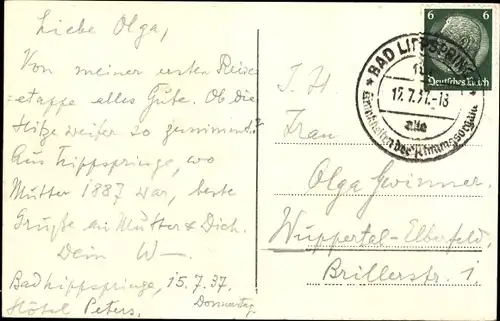 Liebe Olga,
Von meiner ersten Reise=
=etappe alles Gute. Ob die
Hitze weiter so zunimmt?
Aus Lippspringe, wo
Mutter 1887 war, beste
Grüße an Mutter & Dich.
Dein W—
Bad Lippspringe, 15.7.37.
Hôtel Peters. Donnerstag.
6 6
Deutsches Reich
BAD LIPPSPRINGE
17.7.37.-18
der Atmungsorgane
Frau
Olga Gwinner.
Wuppertal-Elberfeld,
Brillerstr. 1